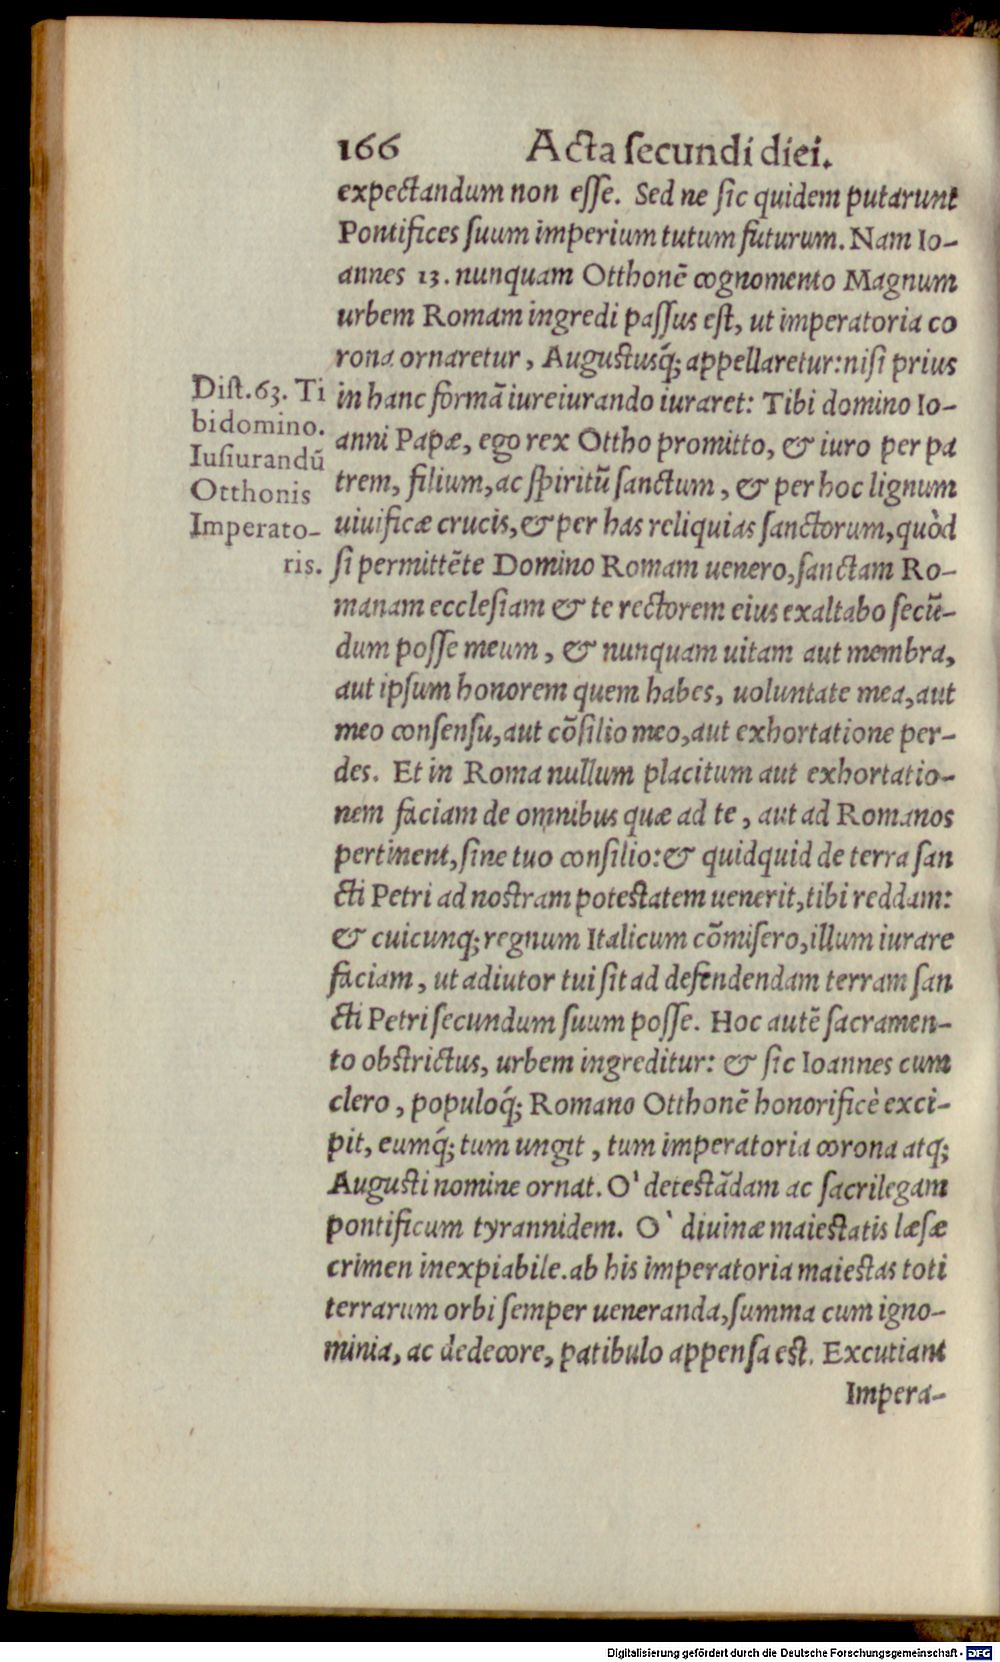 166 Acta ſecundi diei.
expectandum non eſſe. Sed ne ſic quidem putarunt
Pontifices ſuum imperium tutum futurum. Nam Io-
annes 13. nunquam Otthonē cognomento Magnum
urbem Romam ingredi paſſus eſt, ut imperatoria co
rona ornaretur, Auguſtusq́; appellaretur: niſi prius
in hanc formā iureiurando iuraret: Tibi domino Io-
anni Papæ, ego rex Ottho promitto, & iuro per pa
trem, filium, ac ſpiritū ſanctum, & per hoc lignum
uiuificæ crucis, & per has reliquias ſanctorum, quòd
ſi permittēte Domino Romam uenero, ſanctam Ro-
manam eccleſiam & te rectorem eius exaltabo ſecū-
dum poſſe meum, & nunquam uitam aut membra,
aut ipſum honorem quem habes, uoluntate mea, aut
meo conſenſu, aut cōſilio meo, aut exhortatione per-
des. Et in Roma nullum placitum aut exhortatio-
nem faciam de omnibus quæ ad te, aut ad Romanos
pertinent, ſine tuo conſilio: & quidquid de terra ſan
cti Petri ad noſtram poteſtatem uenerit, tibi reddam:
& cuicunq; regnum Italicum cōmiſero, illum iurare
faciam, ut adiutor tui ſit ad defendendam terram ſan
cti Petri ſecundum ſuum poſſe. Hoc autē ſacramen-
to obſtrictus, urbem ingreditur: & ſic Ioannes cum
clero, populoq́; Romano Otthonē honorificè exci-
pit, eumq́; tum ungit, tum imperatoria corona atq;
Auguſti nomine ornat. O' deteſtādam ac ſacrilegam
pontificum tyrannidem. O` diuinæ maieſtatis læſæ
crimen inexpiabile. ab his imperatoria maieſtas toti
terrarum orbi ſemper ueneranda, ſumma cum igno-
minia, ac dedecore, patibulo appenſa eſt. Excutiant
Impera-
Diſt. 63. Ti
bi domino.
Iuſiurandū
Otthonis
Imperato-
ris.
Digitalisierung gefördert durch die Deutsche Forschungsgemeinschaft - DFG